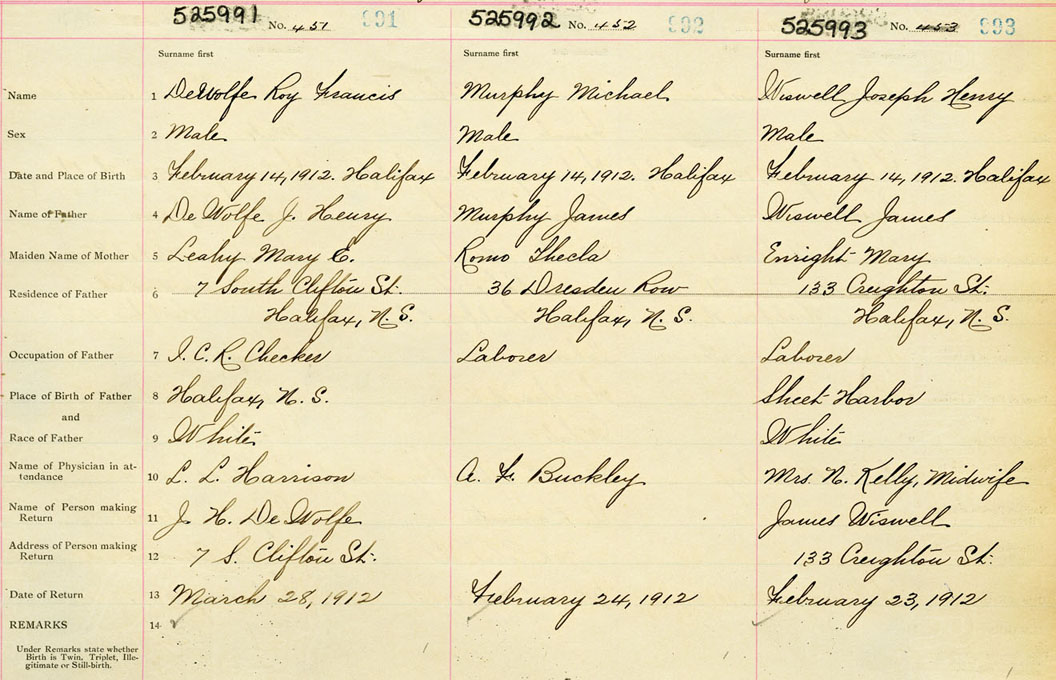 525991 No. 451 991 525992 No. 452 992 525993 No. 453 993
Surname first Surname first Surname first
Name 1 DeWolfe Roy Francis Murphy Michael Wiswell Joseph Henry
Sex 2 Male Male Male
Date and Place of Birth 3 February 14, 1912. Halifax February 14, 1912. Halifax February 14, 1912. Halifax
Name of Father 4 De Wolfe J. Henry Murphy James Wiswell James
Maiden Name of Mother 5 Leahy Mary E. Romo Thecla Enright Mary
Residence of Father 6 7 South Clifton St. 36 Dresden Row 133 Creighton St.
Halifax, N. S. Halifax, N. S. Halifax, N. S.
Occupation of Father 7 I. C. R. Checker Laborer Laborer
Place of Birth of Father 8 Halifax, N. S. Sheet Harbor
and
Race of Father 9 White White
Name of Physician in at-
tendance 10 L. L. Harrison A. F. Buckley Mrs. N. Kelly, Midwife
Name of Person making
Return 11 J. H. De Wolfe James Wiswell
Address of Person making
Return 12 7 S. Clifton St. 133 Creighton St.
Date of Return 13 March 28, 1912 February 24, 1912 February 23, 1912
REMARKS 14
Under Remarks state whether
Birth is Twin, Triplet, Ille-
gitimate or Still-birth.